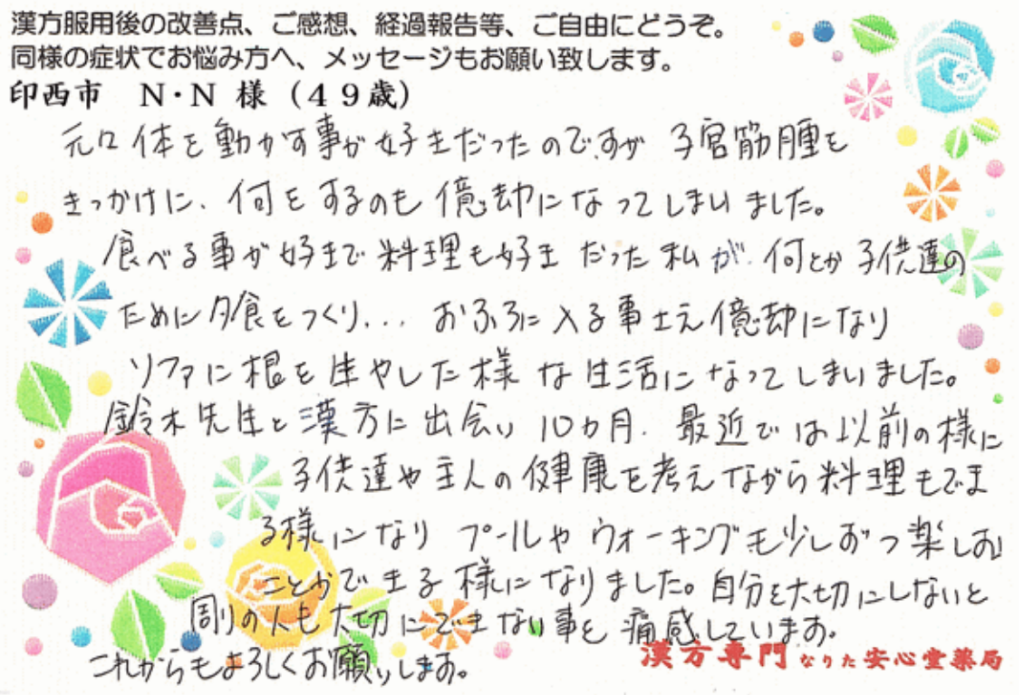 漢方服用後の改善点、ご感想、経過報告等、ご自由にどうぞ。
同様の症状でお悩み方へ、メッセージもお願い致します。
印西市 N・N 様（49歳）
元々体を動かす事が好きだったのですが 子宮筋腫を
きっかけに、何をするのも億劫になってしまいました。
食べる事が好きで料理も好きだった私が、何とか子供達の
ために夕食をつくり... おふろに入る事さえ億劫になり
ソファに根を生やした様な生活になってしまいました。
鈴木先生と漢方に出会い 10カ月. 最近では以前の様に
子供達や主人の健康を考えながら料理もでき
る様になり プールやウォーキングも少しずつ楽しむ
ことができる様になりました。自分を大切にしないと
周りの人も大切にできない事を痛感しています。
これからもよろしくお願いします。
漢方専門 なりた安心堂薬局